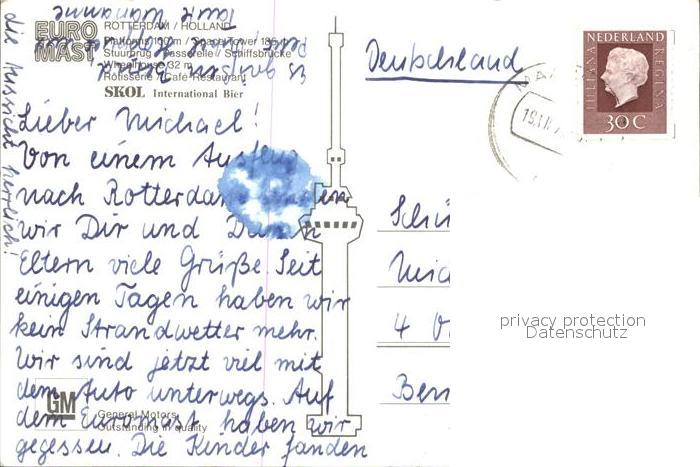 EURO MAST
ROTTERDAM / HOLLAND
Platforms 100 m / Space Tower 185 m
Stuurbrug / Passerelle / Schiffsbrücke
Wheelhouse 32 m
Rotisserie / Café Restaurant
SKOL International Bier
Lieber Michael!
Von einem Ausflug
nach Rotterdam senden
wir Dir und Deinen
Eltern viele Grüße. Seit
einigen Tagen haben wir
kein Strandwetter mehr.
Wir sind jetzt viel mit
dem Auto unterwegs. Auf
dem Euromast haben wir
gegessen. Die Kinder fanden
die Aussicht herrlich!
Es grüßen
GM
General Motors
Outstanding in quality
Deutschland
NEDERLAND
JULIANA REGINA
30 C
Schü
Mic
4
privacy protection
Datenschutz